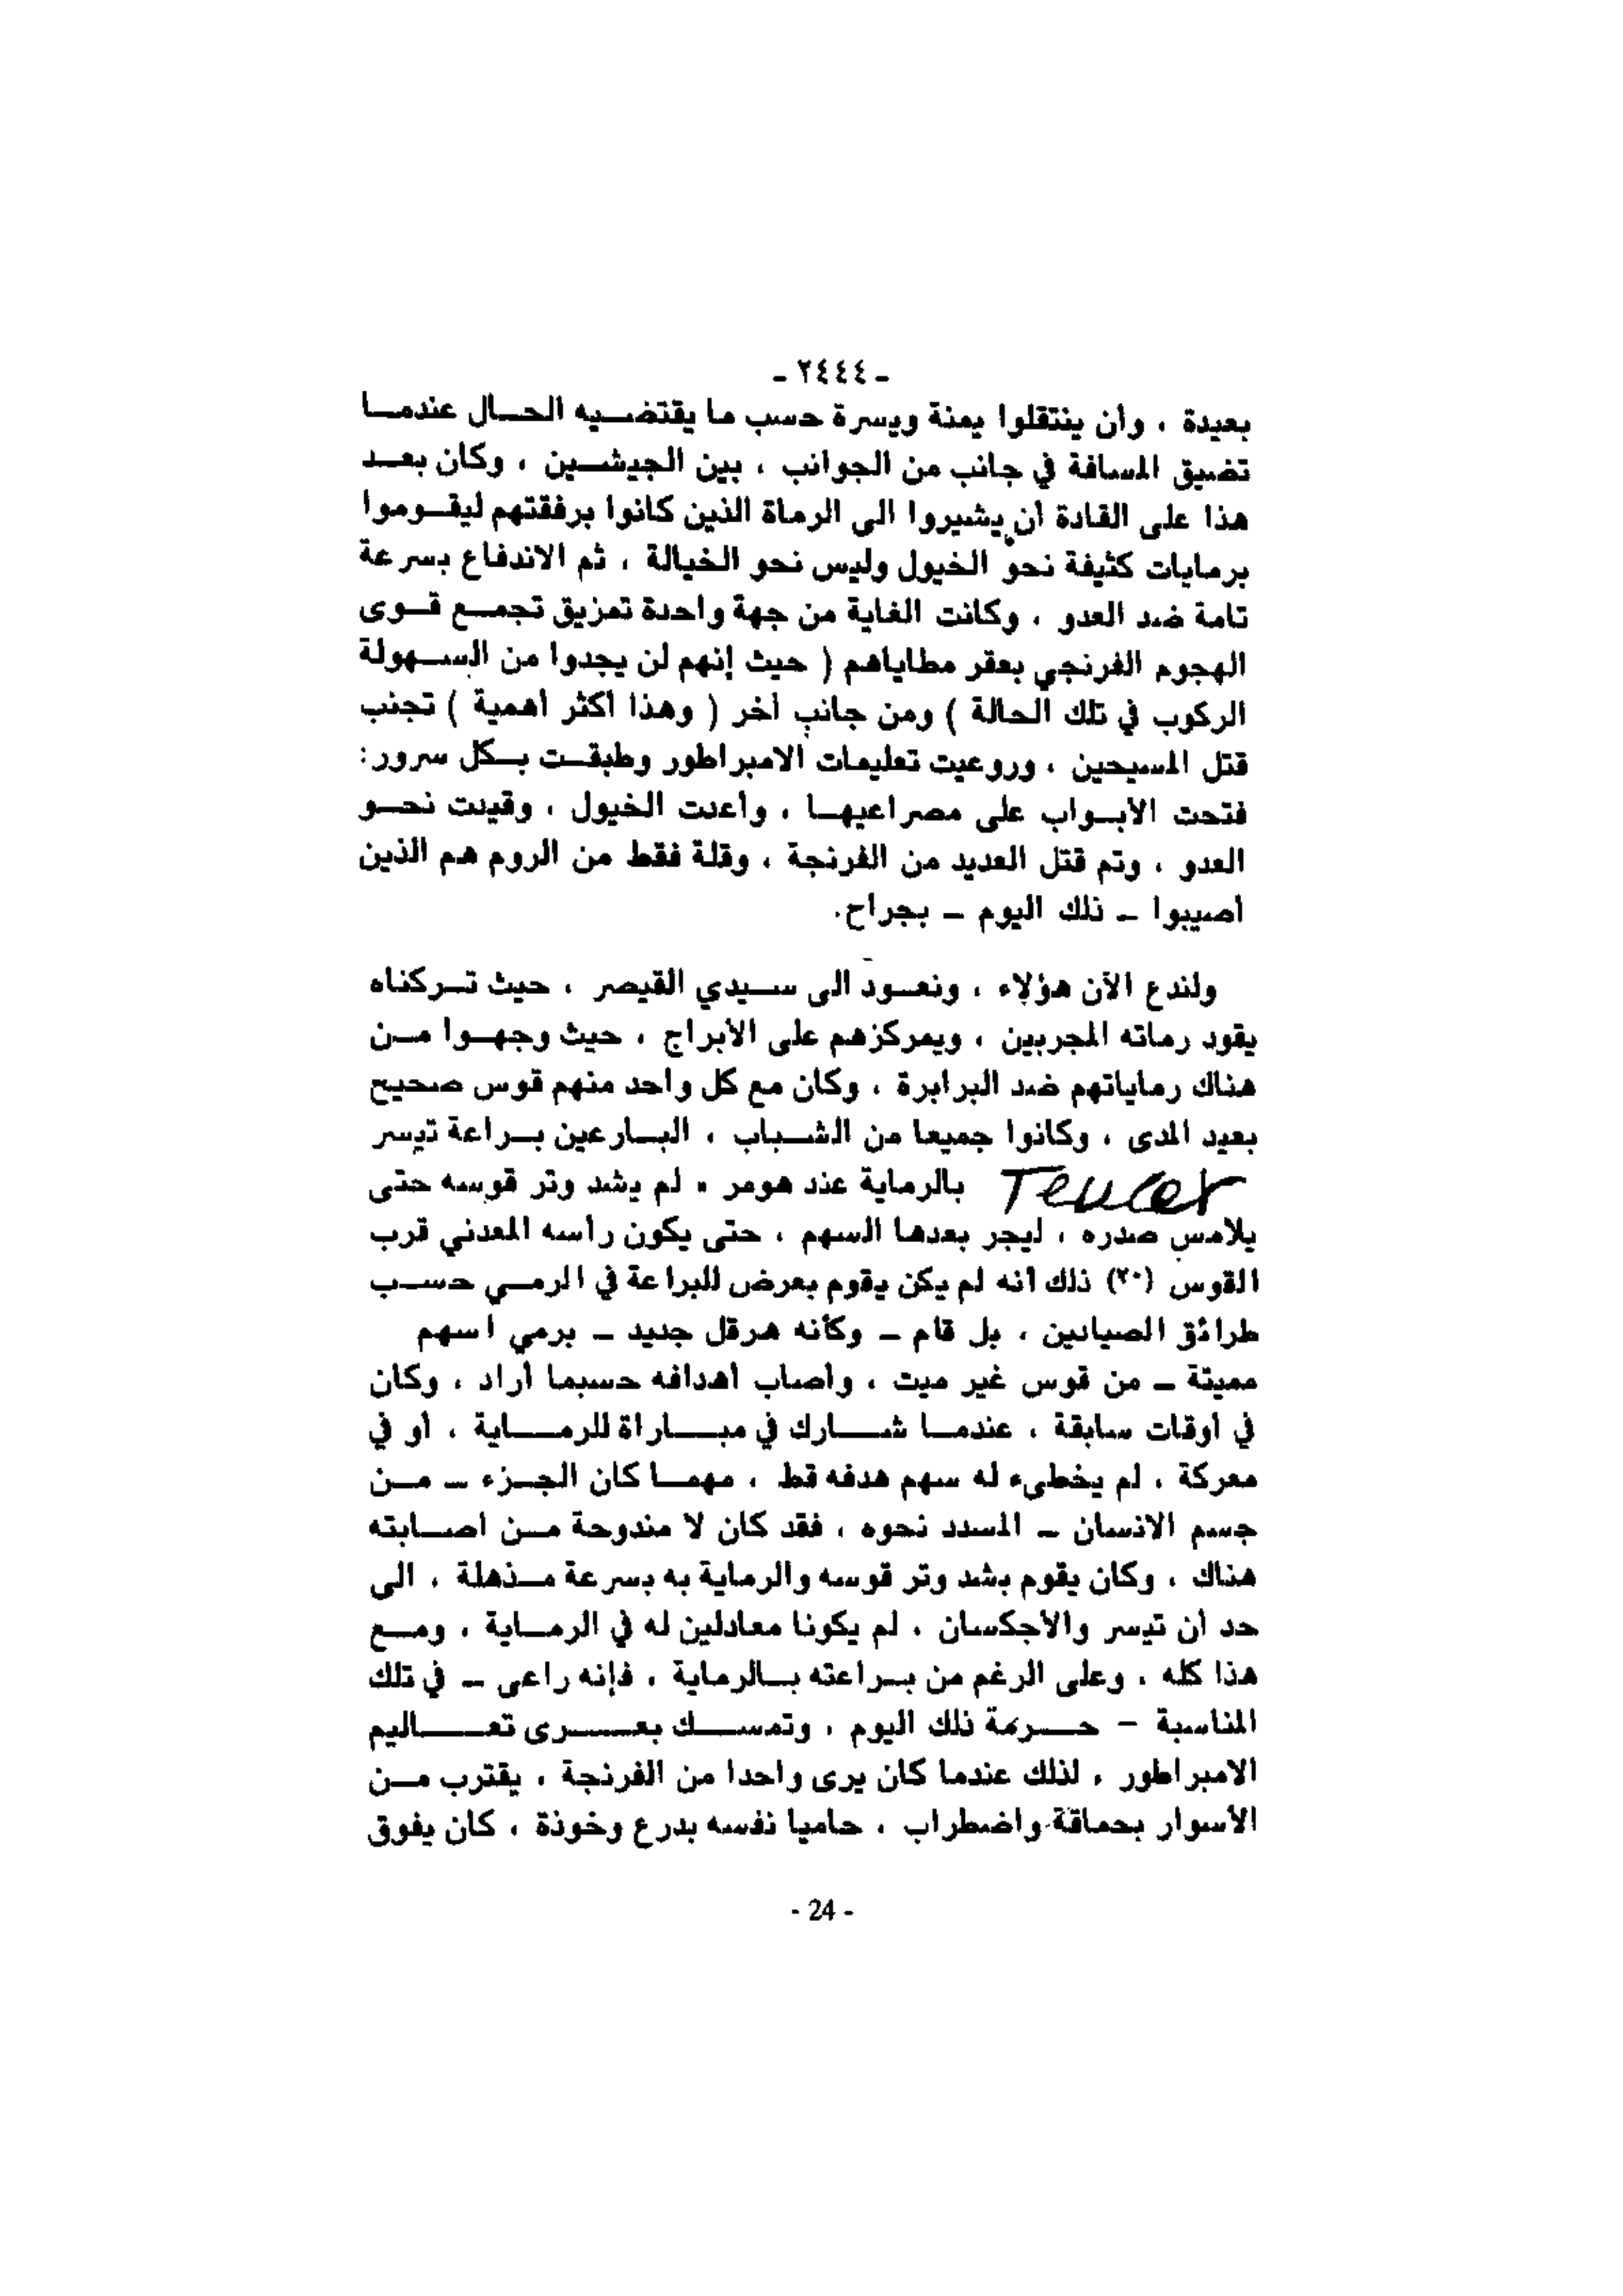 - ٢٤٤٤ -
بعيدة ، وأن ينتقلوا يمنة ويسرة حسب ما يقتضيه الحال عندما
تضيق المسافة في جانب من الجوانب ، بين الجيشين ، وكان بعد
هذا على القادة أن يشيروا الى الرماة الذين كانوا برفقتهم ليقوموا
برمايات كثيفة نحو الخيول وليس نحو الخيالة ، ثم الاندفاع بسرعة
تامة ضد العدو ، وكانت الغاية من جهة واحدة تمزيق تجمع قوى
الهجوم الفرنجي بعقر مطاياهم ( حيث إنهم لن يجدوا من السهولة
الركوب في تلك الحالة ) ومن جانب أخر ( وهذا أكثر أهمية ) تجنب
قتل المسيحين ، وروعيت تعليمات الامبراطور وطبقت بكل سرور:
فتحت الأبواب على مصراعيها ، وأعدت الخيول ، وقيدت نحو
العدو ، وتم قتل العديد من الفرنجة ، وقلة فقط من الروم هم الذين
أصيبوا - ذلك اليوم - بجراح.
ولندع الآن هؤلاء ، ونعود الى سيدي القيصر ، حيث تركناه
يقود رماته المجربين ، ويمركزهم على الأبراج ، حيث وجهوا من
هناك رماياتهم ضد البرابرة ، وكان مع كل واحد منهم قوس صحيح
بعيد المدى ، وكانوا جميعا من الشباب ، البارعين براعة تيسر
Teucer بالرماية عند هومر " لم يشد وتر قوسه حتى
يلامس صدره ، ليجر بعدها السهم ، حتى يكون رأسه المعدني قرب
القوس (٢٠) ذلك أنه لم يكن يقوم بعرض للبراعة في الرمي حسب
طرائق الصيادين ، بل قام - وكأنه هرقل جديد - برمي اسهم
مميتة - من قوس غير ميت ، وأصاب أهدافه حسبما أراد ، وكان
في أوقات سابقة ، عندما شارك في مباراة للرماية ، أو في
معركة ، لم يخطىء له سهم هدفه قط ، مهما كان الجزء - من
جسم الانسان - المسدد نحوه ، فقد كان لا مندوحة من اصابته
هناك ، وكان يقوم بشد وتر قوسه والرماية به بسرعة مذهلة ، الى
حد أن تيسر والاجكسان ، لم يكونا معادلين له في الرماية ، ومع
هذا كله ، وعلى الرغم من براعته بالرماية ، فإنه راعى - في تلك
المناسبة - حرمة ذلك اليوم ، وتمسك بعرى تعاليم
الامبراطور ، لذلك عندما كان يرى واحدا من الفرنجة ، يقترب من
الأسوار بحماقة واضطراب ، حاميا نفسه بدرع وخوذة ، كان يفوق
- 24 -